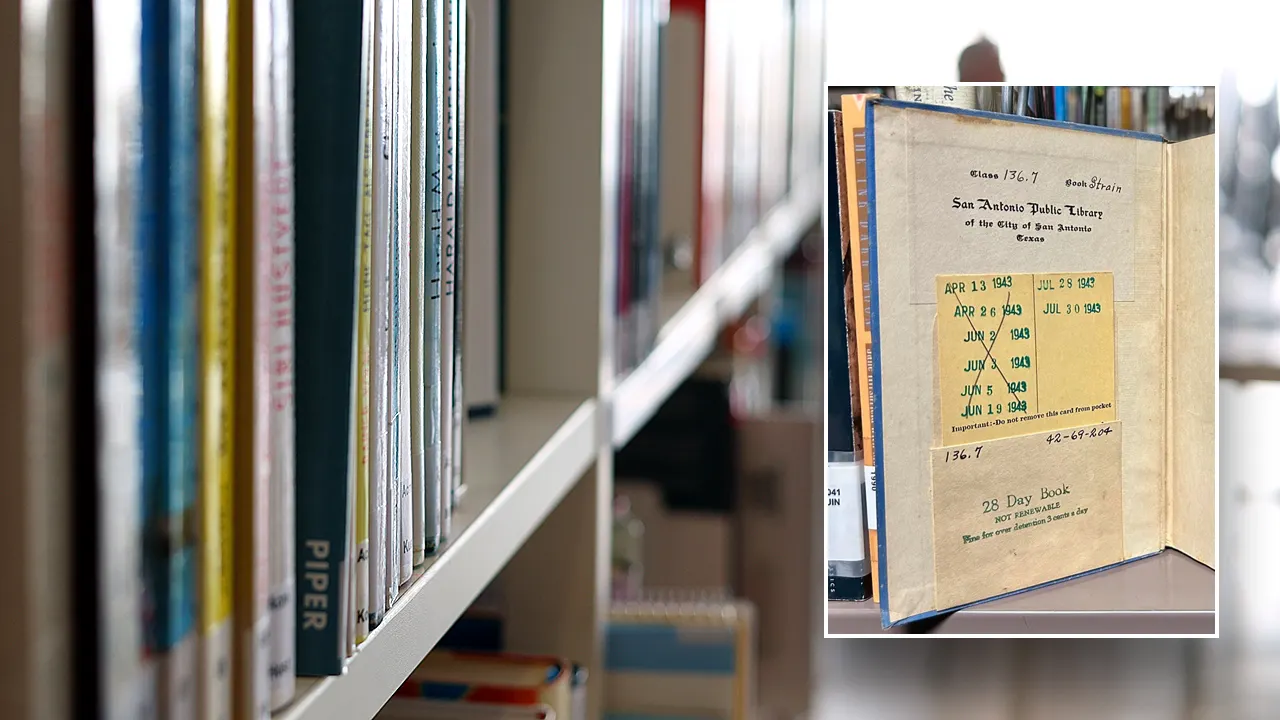 PIPER
Class 136.7 Book Strain
San Antonio Public Library
of the City of San Antonio
Texas
APR 13 1943 JUL 28 1943
APR 26 1943 JUL 30 1943
JUN 2 1943
JUN 3 1943
JUN 5 1943
JUN 19 1943
Important:-Do not remove this card from pocket
136.7 42-69-204
28 Day Book
NOT RENEWABLE
Fine for over detention 3 cents a day